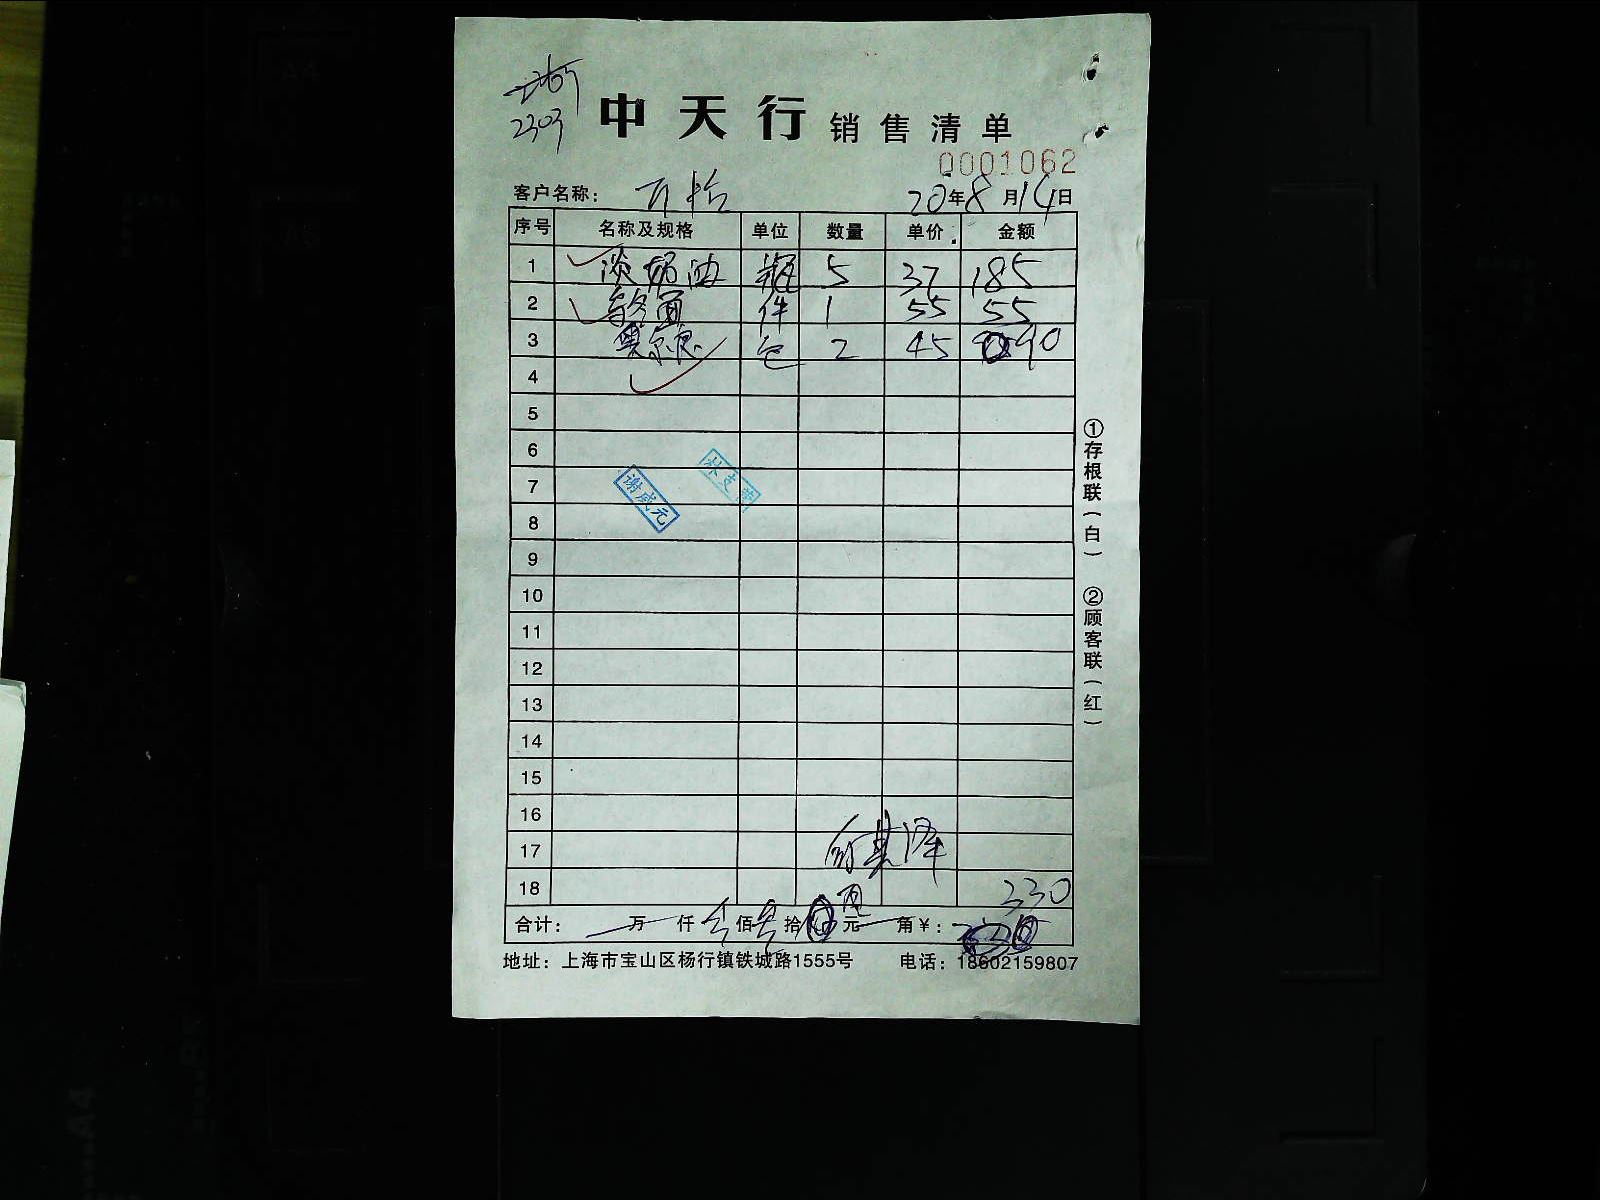 2303
中天行 销售清单
0001062
客户名称： 万怡 20年8月14日
序号 名称及规格 单位 数量 单价 金额
1 淡奶油 瓶 5 37 185
2 件 1 55 55
3 奥尔良 包 2 45 90
4
5
6
7 谢成元
8
9
10
11
12
13
14
15
16
17
18 330
合计： 万 仟 佰 拾 元 角 ¥：
地址：上海市宝山区杨行镇铁城路1555号 电话：18602159807
①存根联（白） ②顾客联（红）